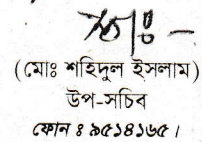 (মোঃ শহিদুল ইসলাম)
উপ-সচিব
ফোন ঃ ৯৫১৪১৬৫।